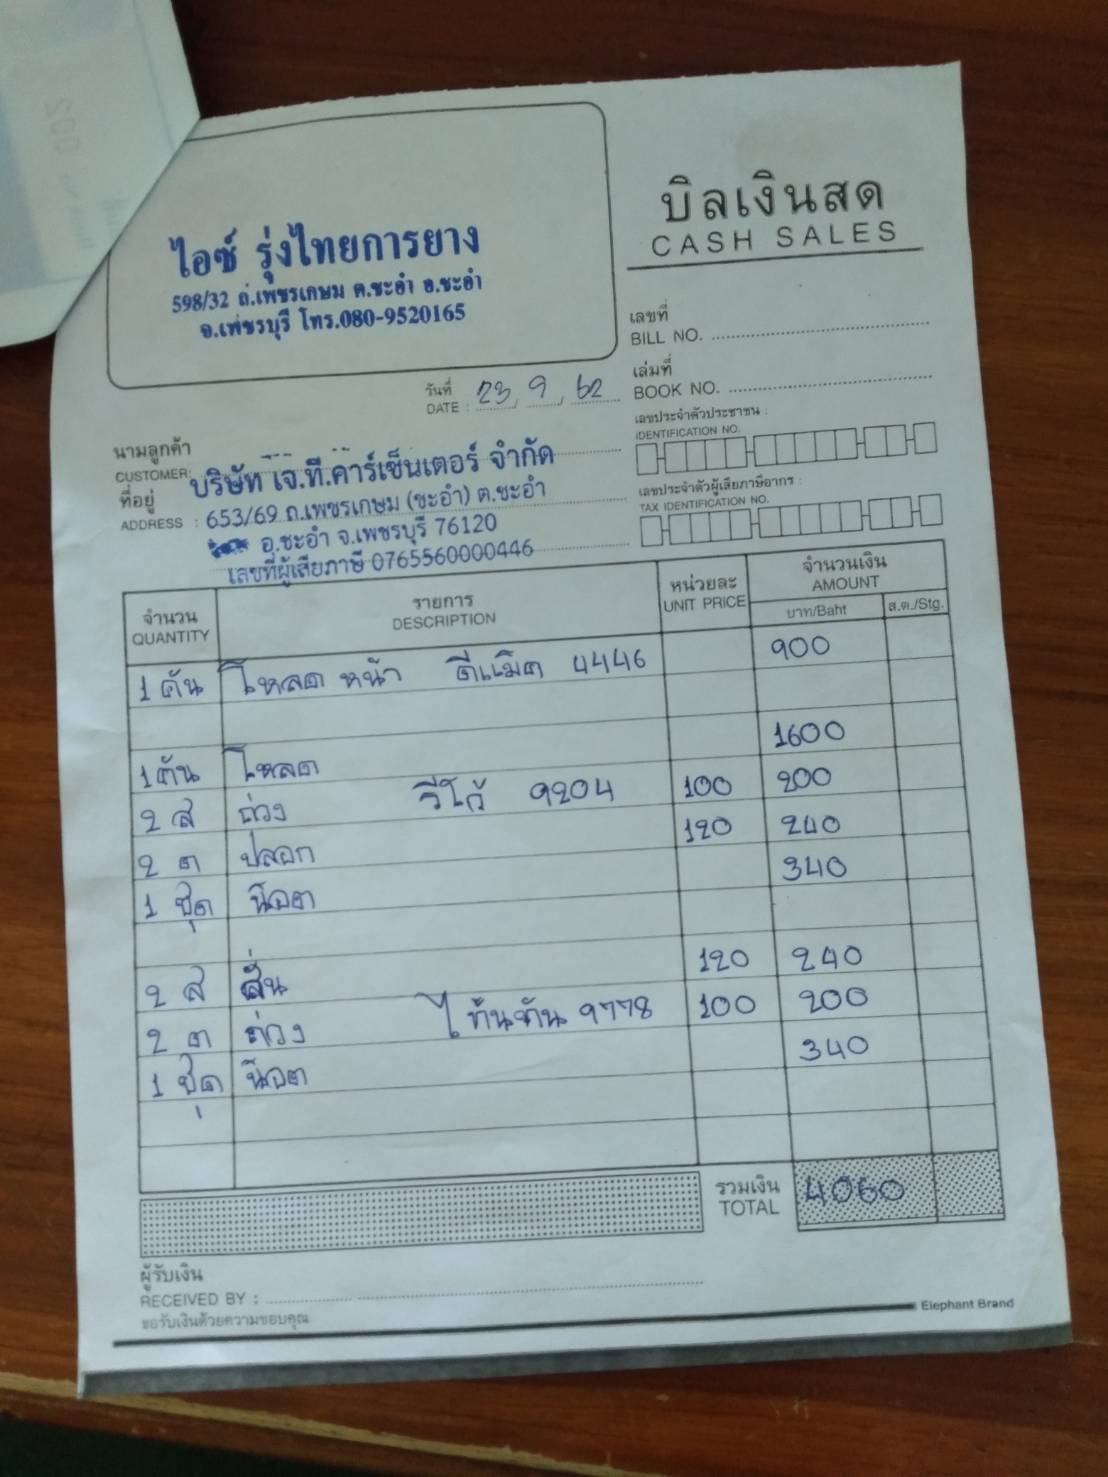 ไอซ์ รุ่งไทยการยาง
598/32 ถ.เพชรเกษม ต.ชะอำ อ.ชะอำ
จ.เพชรบุรี โทร.080-9520165
บิลเงินสด
CASH SALES
เลขที่
BILL NO.
วันที่
DATE : 23, 9, 62
เล่มที่
BOOK NO.
เลขประจำตัวประชาชน :
IDENTIFICATION NO.
นามลูกค้า
CUSTOMER: บริษัท เจ.ที.คาร์เซ็นเตอร์ จำกัด
ที่อยู่
ADDRESS : 653/69 ถ.เพชรเกษม (ชะอำ) ต.ชะอำ
อ.ชะอำ จ.เพชรบุรี 76120
เลขที่ผู้เสียภาษี 0765560000446
เลขประจำตัวผู้เสียภาษีอากร :
TAX IDENTIFICATION NO.
จำนวน รายการ หน่วยละ จำนวนเงิน
QUANTITY DESCRIPTION UNIT PRICE AMOUNT
บาท/Baht ส.ต./Stg.
1 คัน โหลดหน้า ดีแม็ค 4446 900
1 คัน โหลด 1600
2 ส ถ่วง วีโก้ 9204 100 200
2 ต ปลอก 120 240
1 ชุด น็อต 340
2 ส สั้น 120 240
2 ต ถ่วง 9778 100 200
1 ชุด น็อต 340
รวมเงิน
TOTAL 4060
ผู้รับเงิน
RECEIVED BY :
ขอรับเงินด้วยความขอบคุณ
Elephant Brand